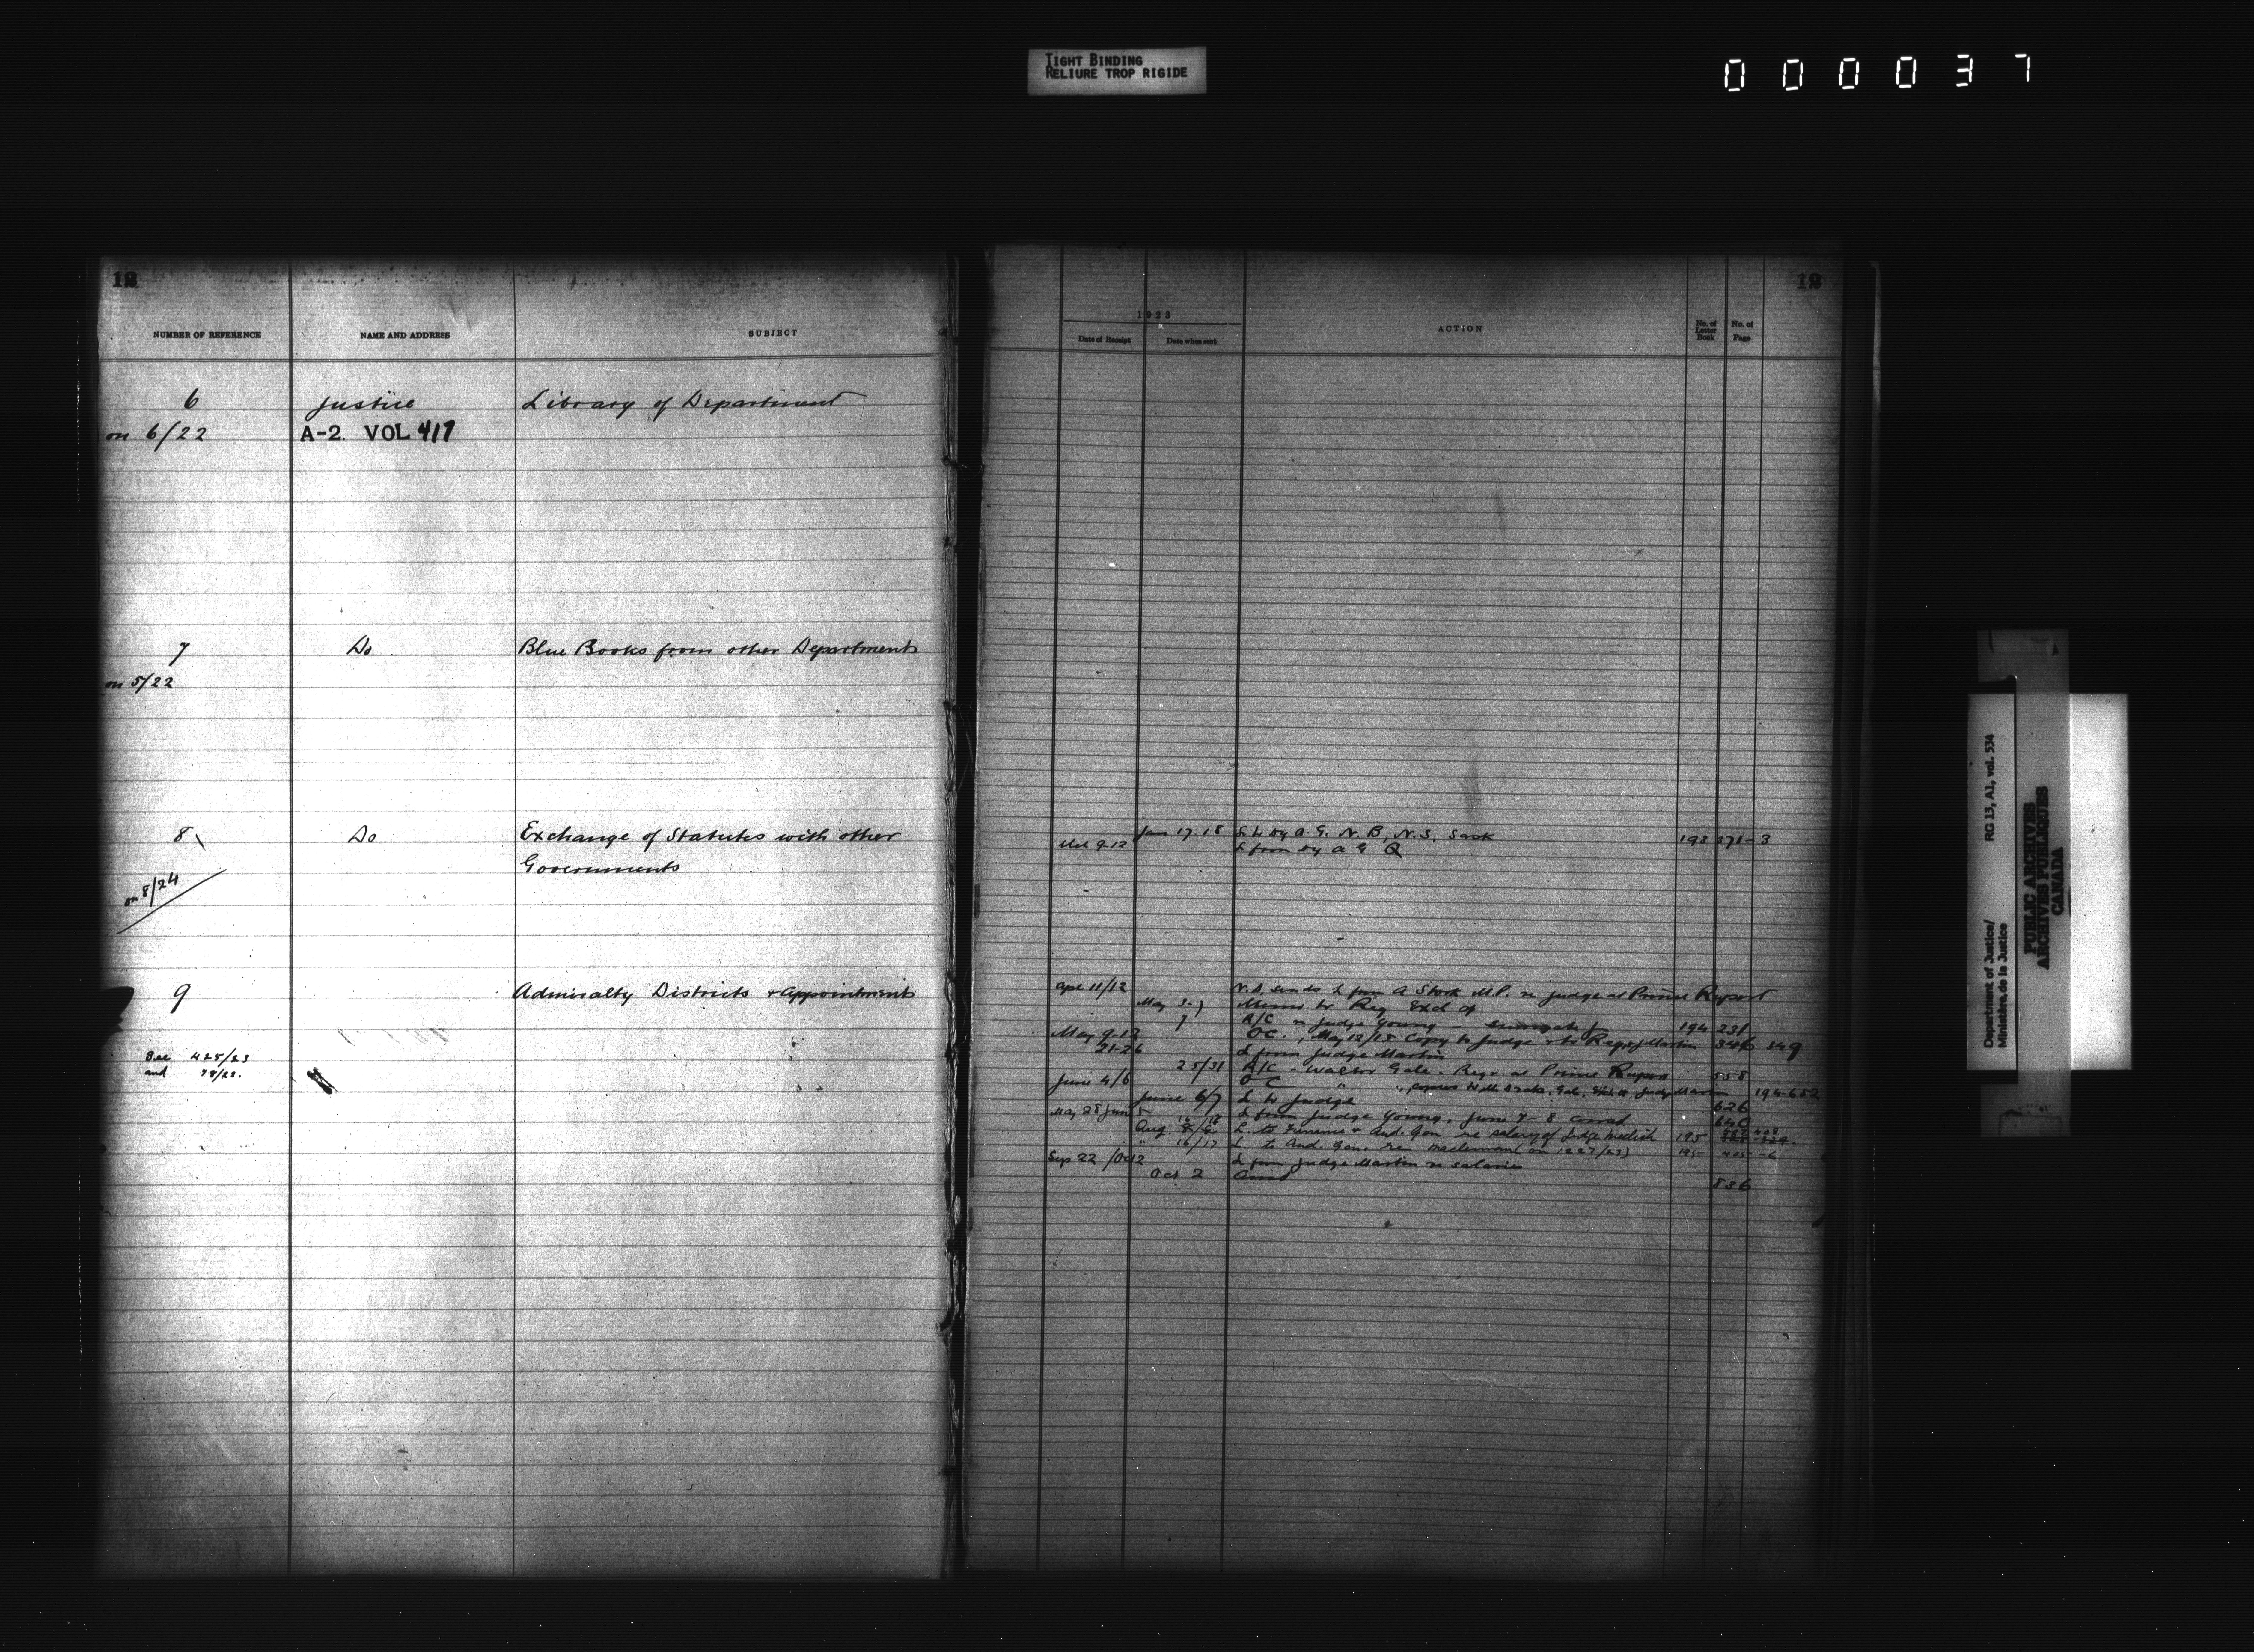 TIGHT BINDING
RELIURE TROP RIGIDE
000037
12
NUMBER OF REFERENCE NAME AND ADDRESS SUBJECT
6 Justice Library of Department
on 6/22 A-2. VOL 417
7 Do Blue Books from other Departments
on 5/22
8 Do Exchange of Statutes with other
Governments
on 8/24
9 Admiralty Districts & Appointments
See 425/23
and 78/23.
12
1923
Date of Receipt Date when sent ACTION No. of Letter Book No. of Page
Jan 17.18 & L Dy A. G. N. B, N. S, Sask 193 371-3
9-12 L from Dy A G Q
Apl 11/12 N.D. sends L from A Stork M.P. re judge at Prince Rupert
May 3- Memo to Reg Exch Ct
7 R/C re Judge Young 194 231
May 9-12 OC. May 12/15 Copy to Judge & to Reg, J Martin 346 349
21-26 L from Judge Martin
25/31 R/C - Walter Gale - Regr at Prince Rupert 558
June 4/6 O C " Gale, Judge Martin 194-652
June 6/7 L to Judge 626
May 28 June 5 L from Judge Young, June 7-8 ansd 640
Aug. L. to Finance & Aud. Gen re salary of Judge Mellish 195
" 16/17 L to Aud. Gen. (on 1227/23) 195 405-6
Sep 22 / Oct 2 L from Judge Martin re salaries
Oct 2 Ansd 836
Department of Justice/ RG 13, A1, vol. 534
Ministère de la Justice
PUBLIC ARCHIVES
ARCHIVES PUBLIQUES
CANADA